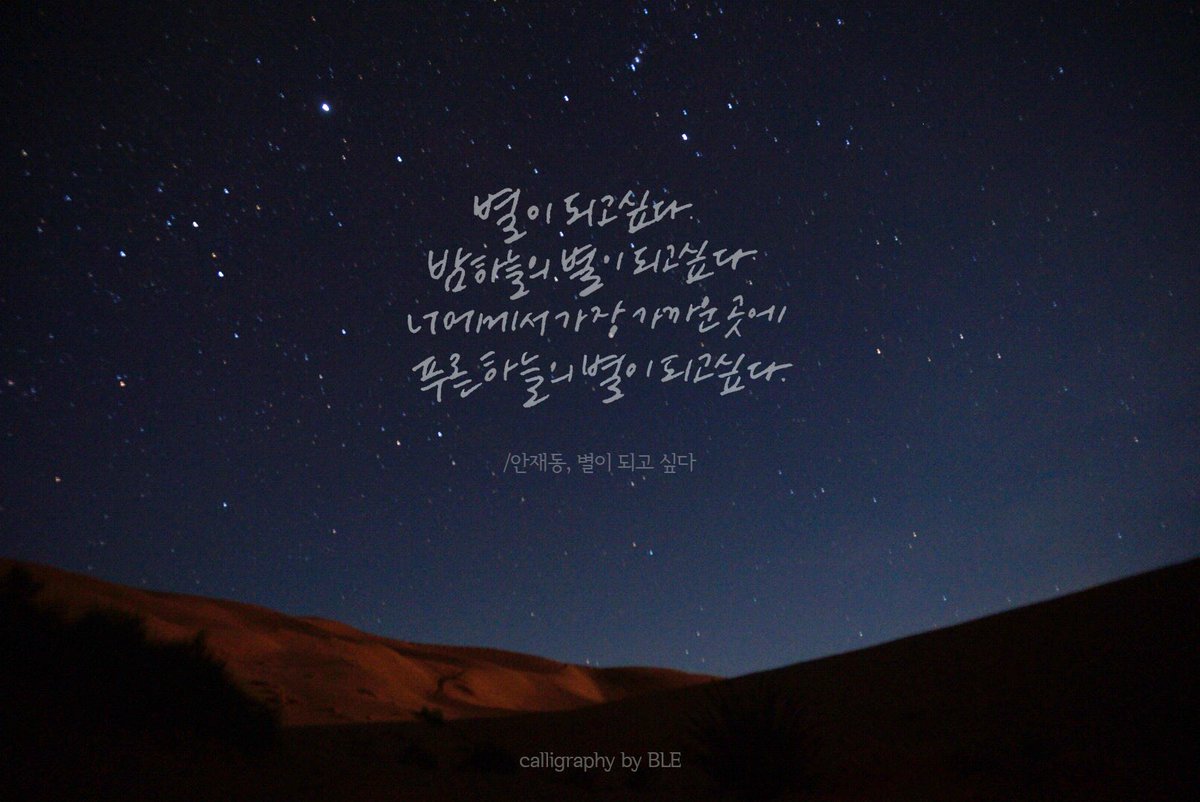 별이 되고싶다.
밤하늘의 별이 되고싶다
너에게서 가장 가까운 곳에
푸른 하늘의 별이 되고싶다.
/안재동, 별이 되고 싶다
calligraphy by BLE